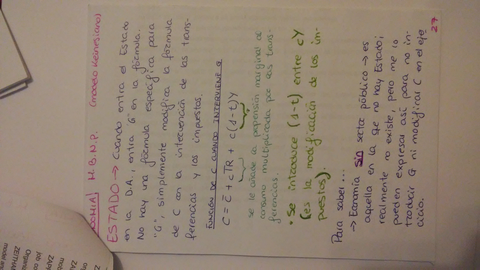 M.B.N.P. (modelo Keynesiano)
ESTADO → cuando entra el Estado
en la D.A., entra G en la fórmula.
No hay una fórmula específica para
"G", simplemente modifica la fórmula
de C con la intervención de las trans-
ferencias y los impuestos.
FUNCIÓN DE C CUANDO INTERVIENE G
C = C̄ + cTR + c(1-t)Y
se le añade la propensión marginal al
consumo multiplicada por las trans-
ferencias.
* Se introduce (1-t) entre cY
(es la modificación de los im-
puestos).
Para saber...
→ Economía sin sector público → es
aquella en la que no hay Estado;
realmente no existe, pero me lo
pueden expresar así, para no in-
troducir G ni modificar C en el ejer-
cicio.
27